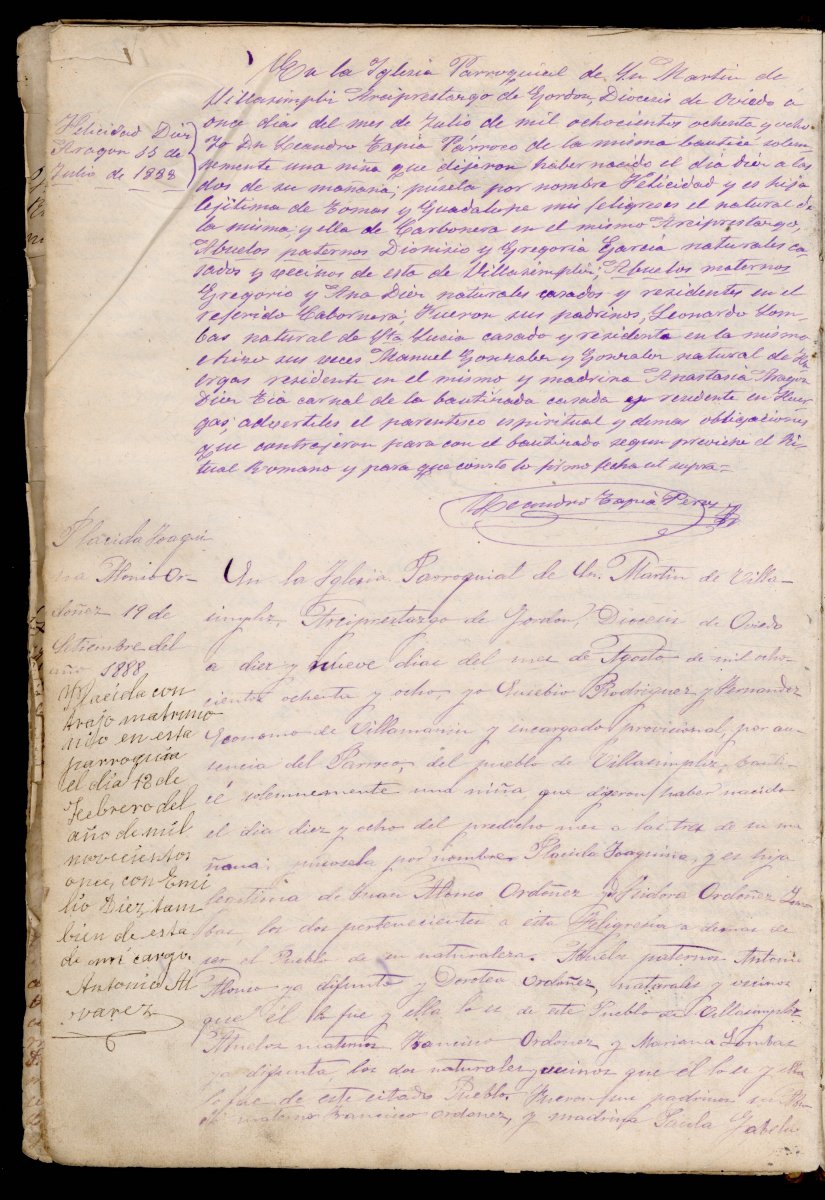 Felicidad Diez
Aragon 11 de
Julio de 1888
En la Iglesia Parroquial de Sn Martin de
Villasimpliz Arciprestazgo de Gordon, Diocesis de Oviedo á
once dias del mes de Julio de mil ochocientos ochenta y ocho
Yo Dn Leandro Tapia Párroco de la misma bautice solem-
nemente una niña que dijeron haber nacido el día diez a las
dos de su mañana; pusela por nombre Felicidad y es hija
lejitima de Tomas y Guadalupe mis feligreses el natural de
la misma, y ella de Carbonera en el mismo Arciprestazgo,
Abuelos paternos Dionisio y Gregoria Garcia naturales ca-
sados y vecinos de esta de Villasimpliz; Abuelos maternos
Gregorio y Ana Diez naturales casados y residentes en el
referido Cabornera; Fueron sus padrinos, Leonardo Lom-
bas natural de Sta Lucia casado y residente en la mismo
é hizo sus veces Manuel Gonzalez y Gonzalez natural de Hu
ergas residente en el mismo y madrina Anastasia Aragon
Diez tia carnal de la bautizada casada y residente en Huer
gas; advertiles el parentesco espiritual y demas obligaciones
que contrajeron para con el bautizado segun previene el Ri
tual Romano y para que conste lo firmo fecha ut supra=
Leandro Tapia Perez
Placida Joaqui
na Alonso Or-
doñez 19 de
Setiembre del
año 1888
Placida con
trajo matrimo
nio en esta
parroquia
el día 12 de
Febrero del
año de mil
novecientos
once, con Emi
lio Diez, tam
bien de esta
de mi cargo.
Antonio Al
varez
En la Iglesia Parroquial de Sn. Martin de Villa-
simpliz, Arciprestazgo de Gordon, Diocesis de Oviedo
a diez y nueve dias del mes de Agosto de mil ocho-
cientos ochenta y ocho, yo Eusebio Rodriguez y Fernandez
Economo de Villamanin y encargado provisional, por au-
sencia del Parroco, del pueblo de Villasimpliz, bauti-
cé solemnemente una niña que digeron haber nacido
el dia diez y ocho del predicho mes a las tres de su ma
ñana; pusosela por nombre Placida Joaquina, y es hija
legitima de Juan Alonso Ordoñez y Isidora Ordoñez Lom
bas los dos pertenecientes a esta Feligresia a demas de
ser el Pueblo de su naturaleza. Abuelos paternos Antonio
Alonso ya difunto y Dorotea Ordoñez, naturales y vecinos
que él lo fue y ella lo es de este Pueblo de Villasimpliz.
Abuelos maternos Francisco Ordoñez y Mariana Lombas
ya difunta, los dos naturales y vecinos que él lo es y ella
lo fue de este citado Pueblo. Fueron sus padrinos su Abue
lo materno Francisco Ordoñez, y madrina Paula